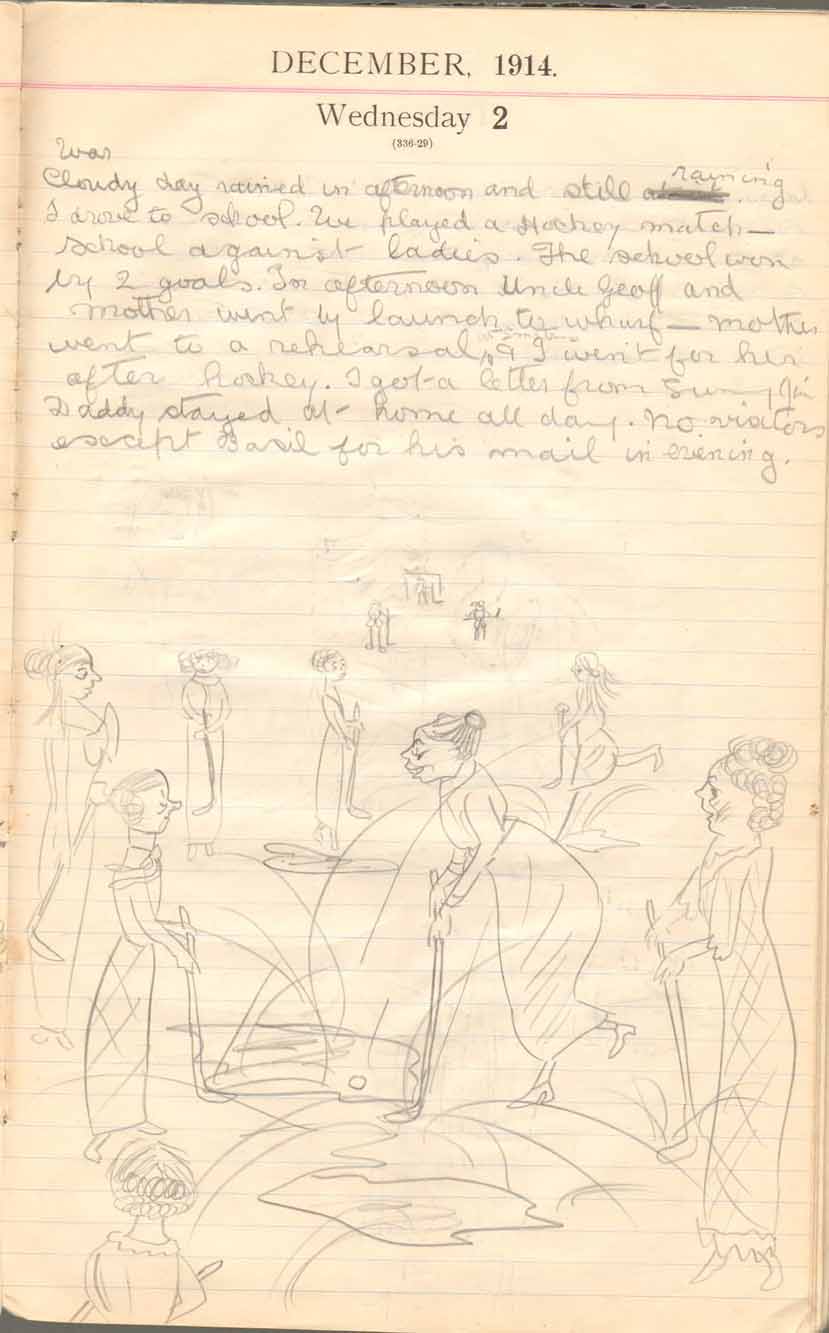 DECEMBER, 1914.
Wednesday 2
(336-29)
War
Cloudy day rained in afternoon and still raining.
I drove to school. We played a Hockey match —
School against ladies. The school won
by 2 goals. In afternoon Uncle Geoff and
mother went by launch to wharf — mother
went to a rehearsal, & I went for her
after hockey. I got a letter from Sunny Jim
Daddy stayed at home all day. No visitors
except Basil for his mail in evening.